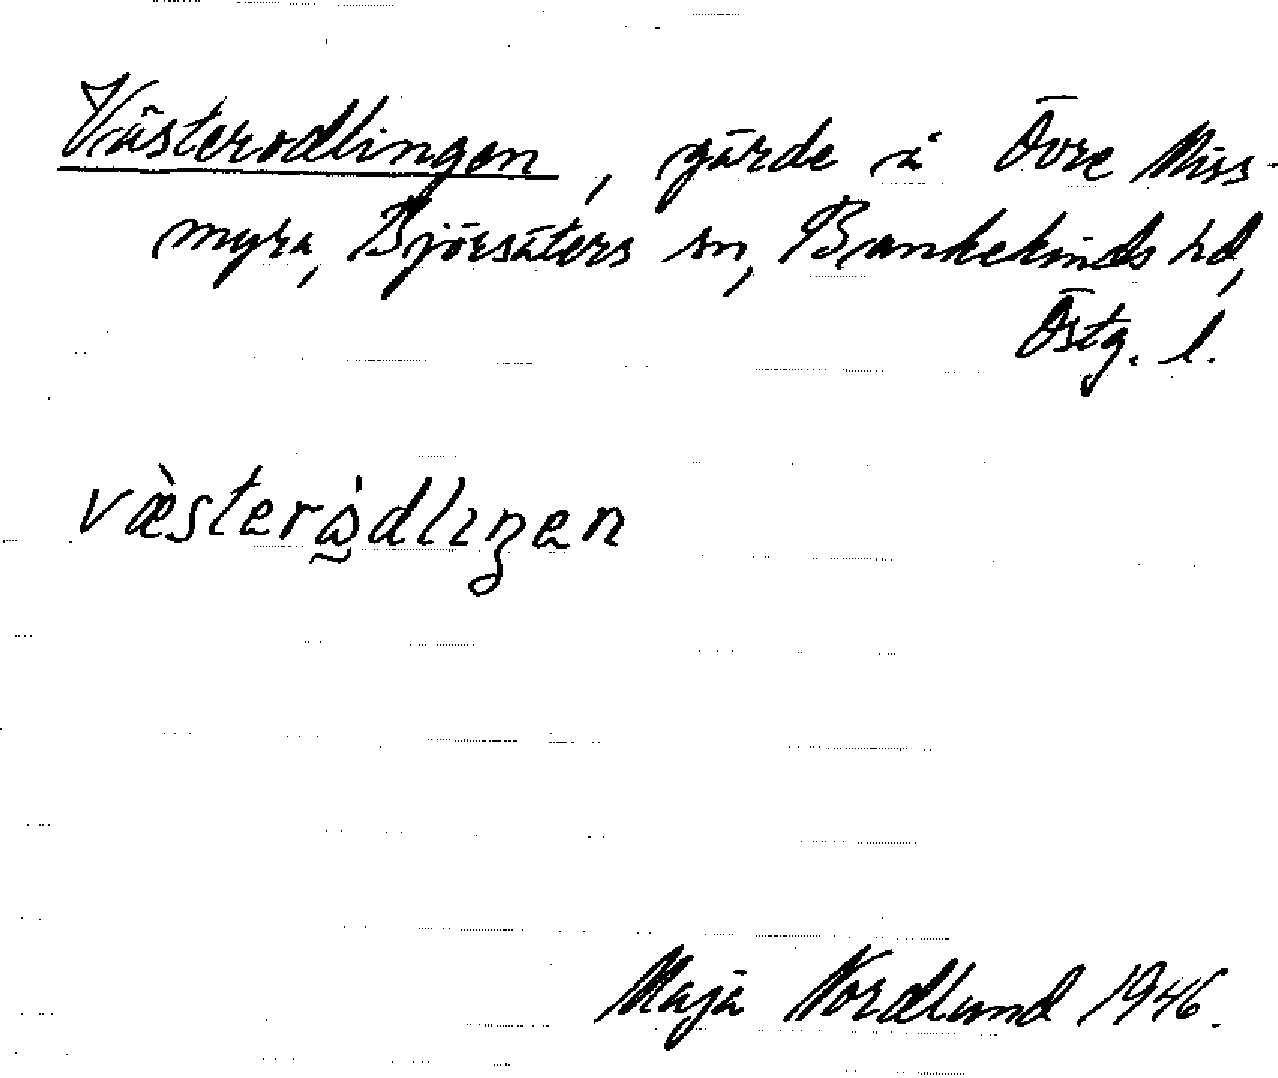 Västerodlingen, gärde å Övre Miss-
myra, Björsäters sn, Bankekinds hd,
Östg. l.
væ̀sterò̰dlıŋen
Maja Nordlund 1946.